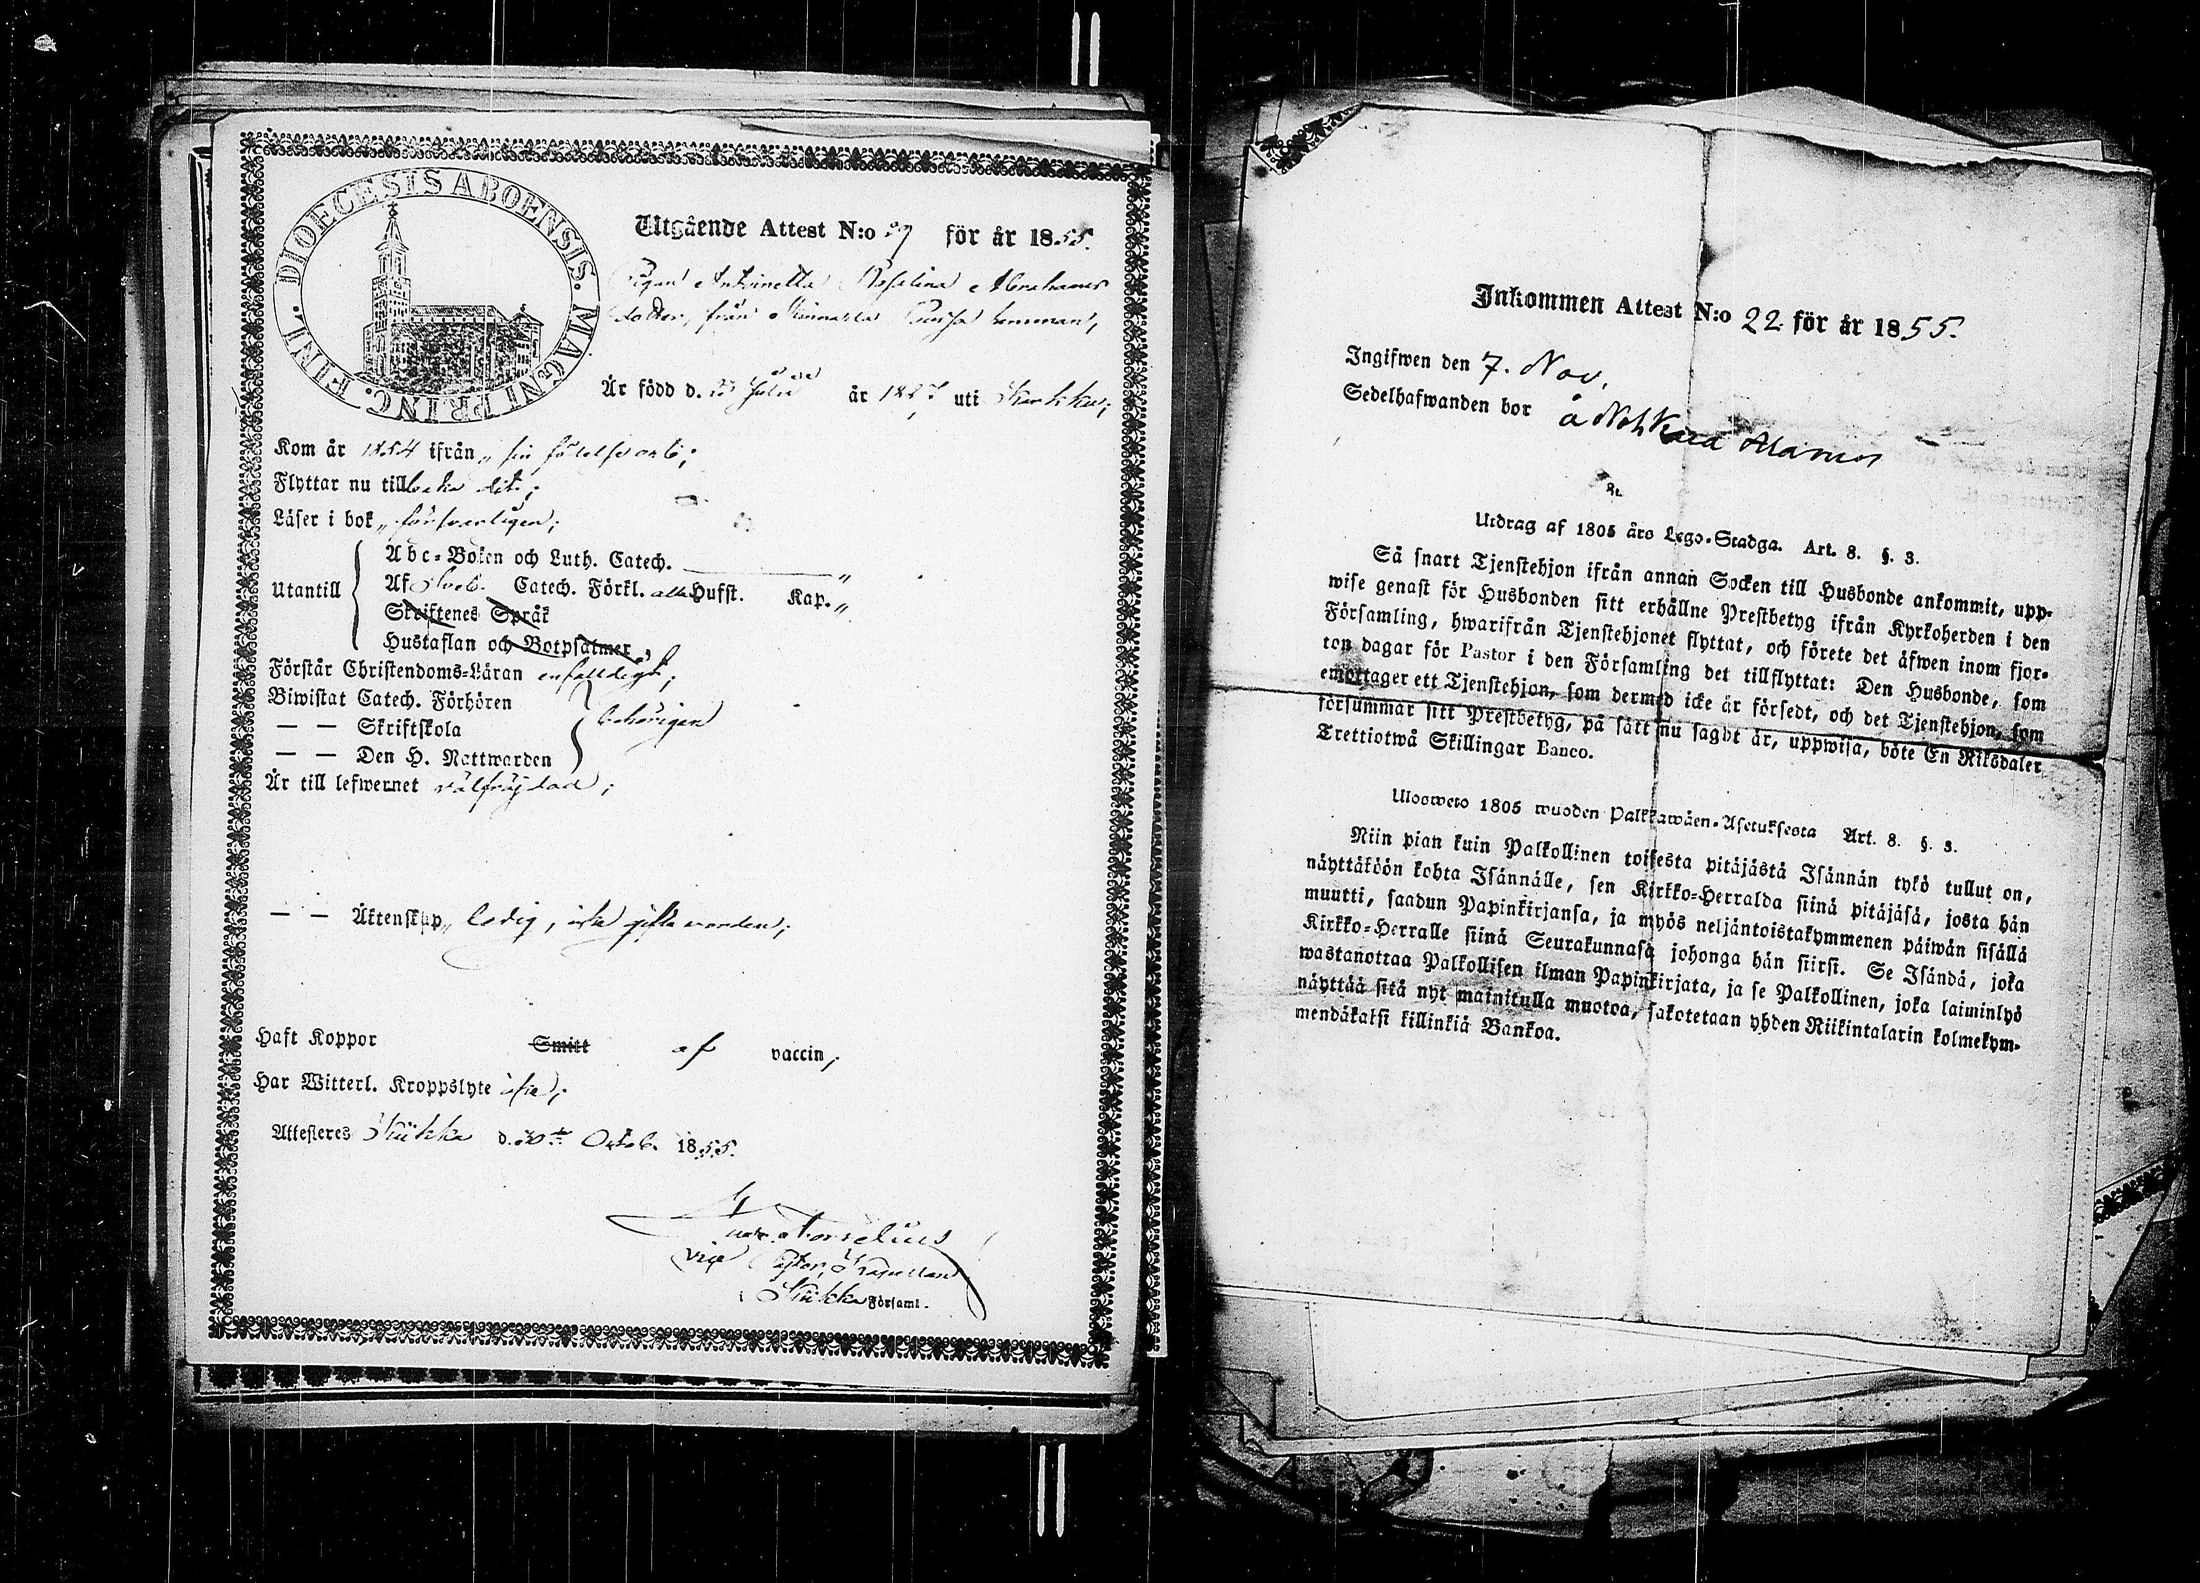 DIOECESIS ABOENSIS. MAGNI PRINC. FINL.
Utgående Attest N:o 29 för år 1855.
Pigan Antoinetta Rosalina Abrahams
dotter, från hemman,
Är född d. 23 Julii år 1827 uti
Kom år 1854 ifrån „ sin födelseort;
Flyttar nu tillbaka dit;
Läser i bok „ försvarligen;
Utantill
Abc-Boken och Luth. Catech. „
Af Sveb. Catech. Förkl. alla Hufst. Kap. „
Skriftenes Språk
Hustaflan och Botpsalmer,
Förstår Christendoms-Läran enfaldigt;
Biwistat Catech. Förhören
— — Skriftskola
behörigen
— — Den H. Nattwarden
Är till lefwernet välfräjdad;
— — Äktenskap „ ledig, icke gift vorden;
Haft Koppor Smitt af vaccin;
Har Witterl. Kroppslyte icke;
Attesteres Kiikka d. 30de Octob. 1855.
vice Pastor, Kapellan
i Kiikka Församl.
Inkommen Attest N:o 22 för år 1855.
Ingifwen den 7. Nov.
Sedelhafwanden bor å
Utdrag af 1805 års Lego-Stadga. Art. 8. §. 3.
Så snart Tjenstehjon ifrån annan Socken till Husbonde ankommit, upp-
wise genast för Husbonden sitt erhållne Prestbetyg ifrån Kyrkoherden i den
Församling, hwarifrån Tjenstehjonet flyttat, och förete det äfwen inom fjor-
ton dagar för Pastor i den Församling det tillflyttat: Den Husbonde, som
emottager ett Tjenstehjon, som dermed icke är försedt, och det Tjenstehjon, som
försummar sitt Prestbetyg, på sätt nu sagdt är, uppwisa, böte En Riksdaler
Trettiotwå Skillingar Banco.
Ulosweto 1805 wuoden Palkkawäen-Asetuksesta Art. 8. §. 3.
Niin pian kuin Palkollinen toisesta pitäjästä Isännän tykö tullut on,
näyttäköön kohta Isännälle, sen Kirkko-Herralda siinä pitäjäsä, josta hän
muutti, saadun Papinkirjansa, ja myös neljäntoistakymmenen päiwän sisällä
Kirkko-Herralle siinä Seurakunnasa johonga hän siirsi. Se Isändä, joka
wastanottaa Palkollisen ilman Papinkirjata, ja se Palkollinen, joka laiminlyö
näyttää sitä nyt mainitulla muotoa, sakotetaan yhden Riikintalarin kolmekym-
mendäkaksi killinkiä Bankoa.